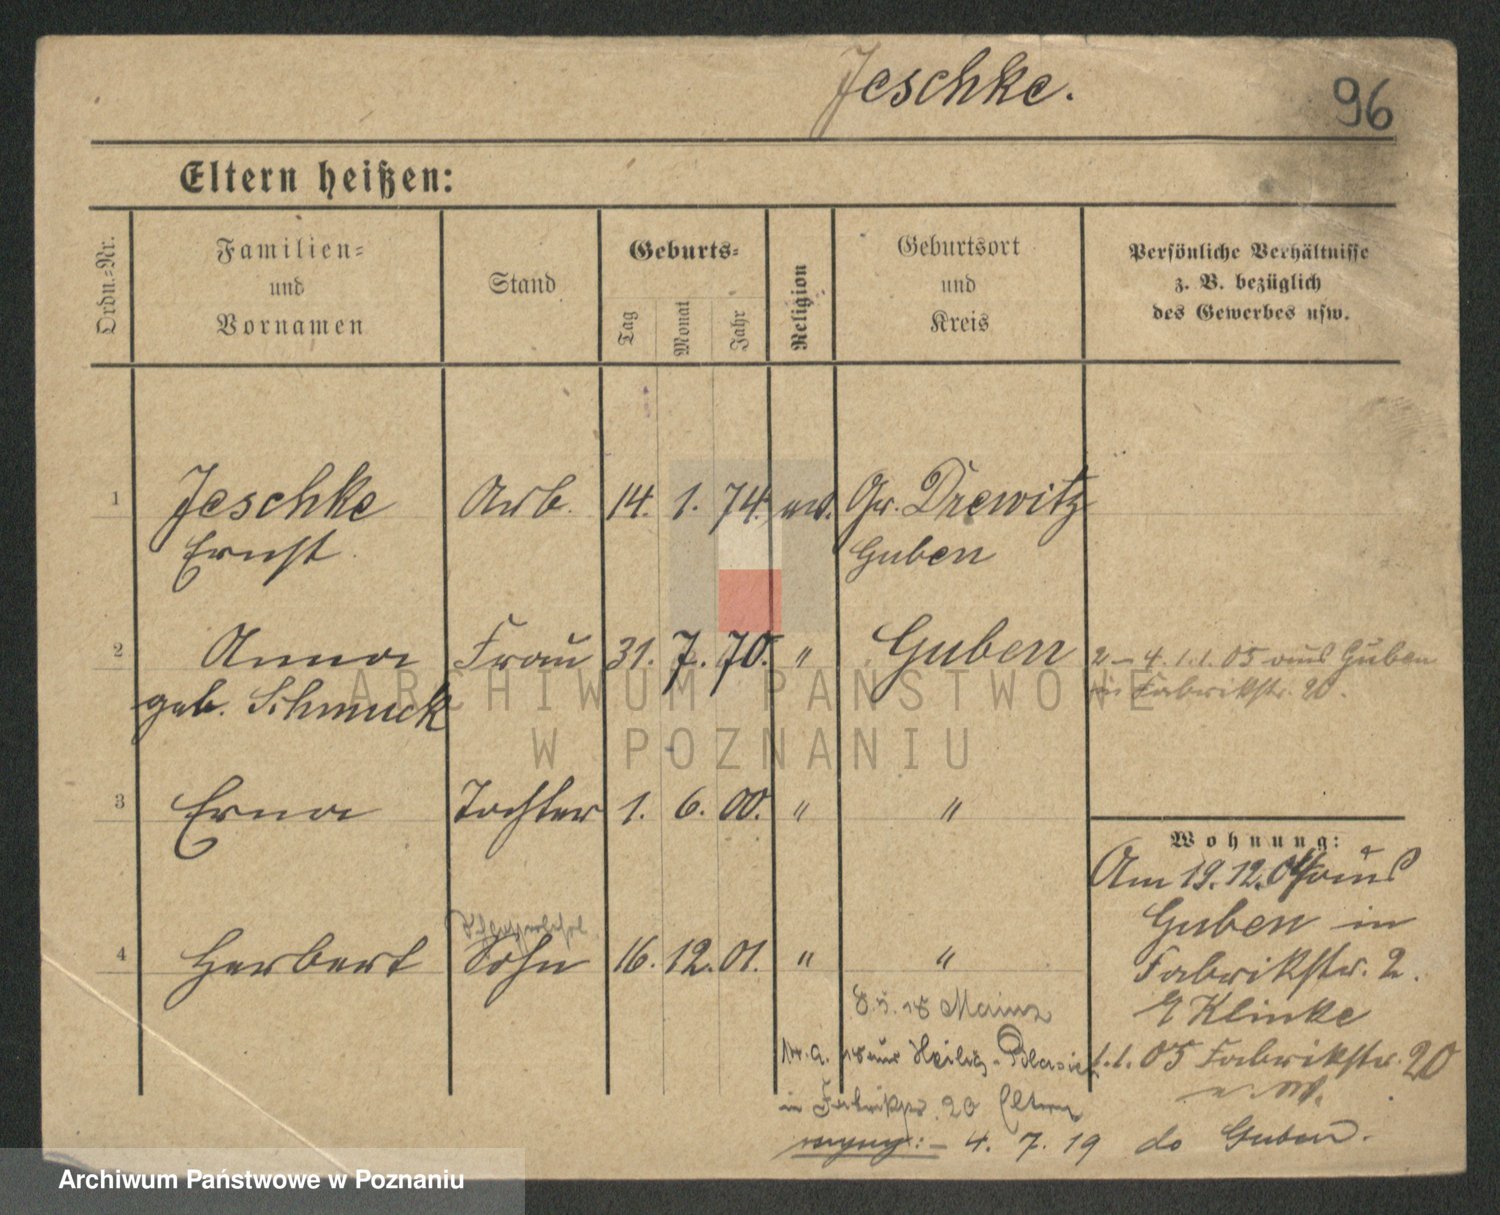 Jeschke.
96
Eltern heißen:
Ordn.-Nr.
Familien-
und
Vornamen
Stand
Geburts-
Tag
Monat
Jahr
Religion
Geburtsort
und
Kreis
Persönliche Verhältnisse
z. B. bezüglich
des Gewerbes usw.
1 Jeschke Arb. 14. 1. 74. ev. Gr. Drewitz
Ernst Guben
2 Anna Frau 31. 7. 70. " Guben
geb. Schmuck
2 – 4. 1.1.05 aus Guben
in Fabrikstr. 20.
3 Erna Tochter 1. 6. 00. " "
4 Herbert Sohn 16. 12. 01. " "
Wohnung:
Am 19.12.04 aus
Guben in
Fabrikstr. 2.
Klinke
1.1.05 Fabrikstr. 20
18 Mainz
18 aus
20 Eltern
4. 7. 19 do Guben.
ARCHIWUM PAŃSTWOWE
W POZNANIU
Archiwum Państwowe w Poznaniu